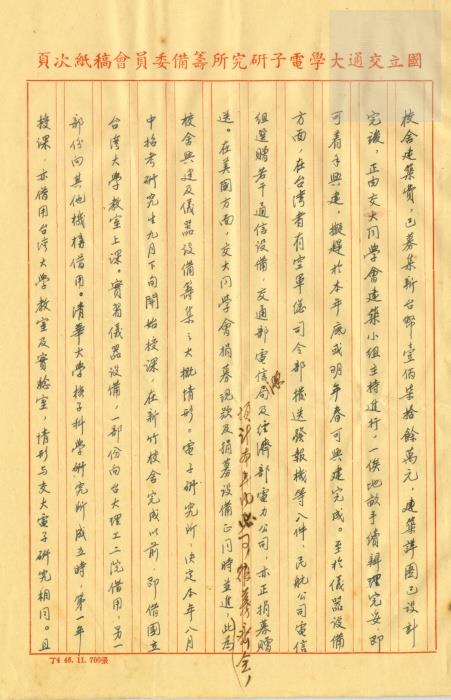 國立交通大學電子研究所籌備委員會稿紙次頁
校舍建築費,已募集新台幣壹佰柒拾餘萬元,建築詳圖已設計
完竣,正由交大同學會建築小組主持進行,一俟地畝手續辦理完妥即
可着手興建,擬趕於本年底或明年春可興建完成。至於儀器設備
方面,在台灣者有空軍總司令部撥送發報機等八件,民航公司電信
組選贈若干通信設備,交通部電信局及經濟部電力公司,亦正捐募贈
預計
送。在美國方面,交大同學會捐募現款及捐募設備正同時並進,此為
校舍興建及儀器設備籌集之大概情形。電子研究所,決定本年八月
中招考研究生九月下旬開始授課,在新竹校舍完成以前,即借國立
台灣大學教室上課。實習儀器設備,一部份向台大理工二院借用,另一
部份向其他機構借用。清華大學核子科學研究所成立時,第一年
授課,亦借用台灣大學教室及實驗室,情形與交大電子研究相同。且
丁4 46.11.700張